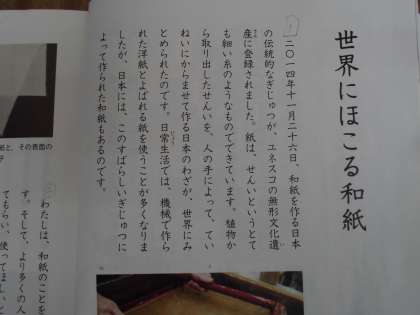 世界にほこる和紙
二〇一四年十一月二十六日、和紙を作る日本
の伝統的なぎじゅつが、ユネスコの無形文化遺
産に登録されました。紙は、せんいというとて
も細い糸のようなものでできています。植物か
ら取り出したせんいを、人の手によって、てい
ねいにからませて作る日本のわざが、世界にみ
とめられたのです。日常生活では、機械で作ら
れた洋紙とよばれる紙を使うことが多くなりま
したが、日本には、このすばらしいぎじゅつに
よって作られた和紙もあるのです。
わたしは、和紙のことを
す。そして、より多くの人
てもらい、使ってほしいと
紙と、その表面の